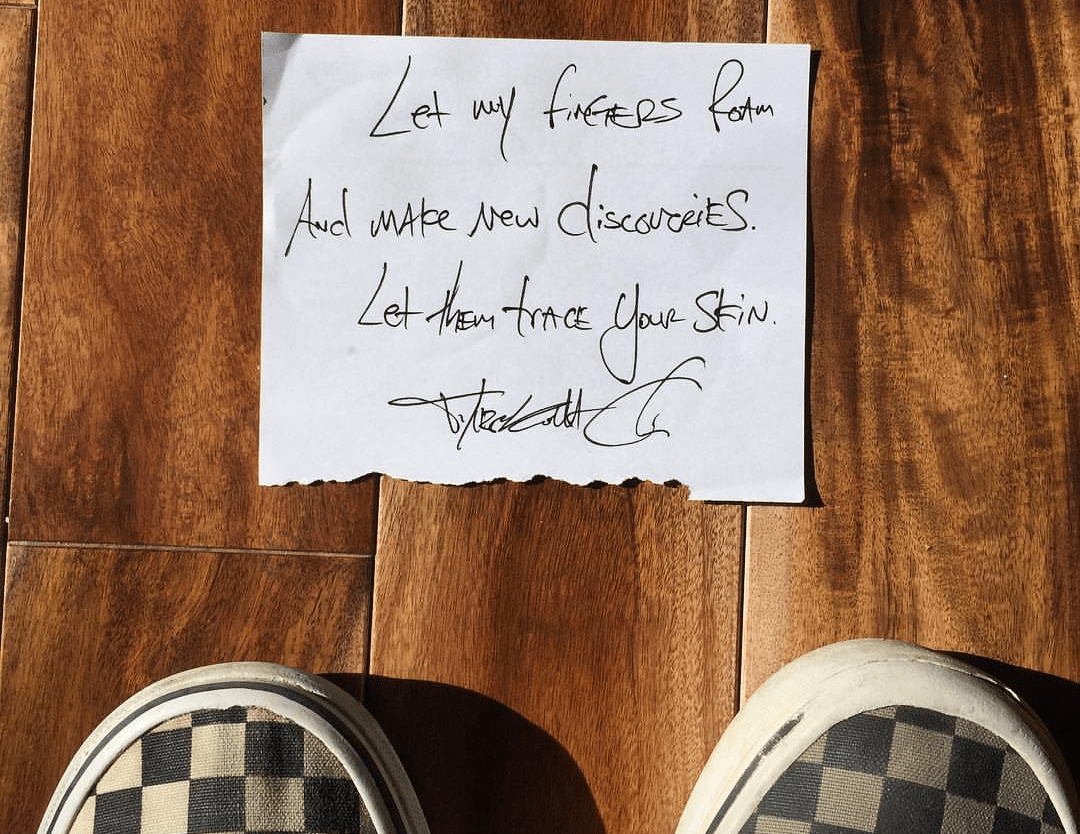 Let my fingers roam
And make new discoveries.
Let them trace your skin.